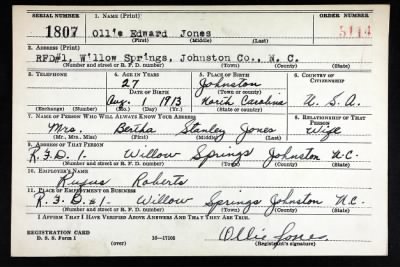 SERIAL NUMBER 1. NAME (Print) ORDER NUMBER
1807 Ollie Edward Jones 5114
(First) (Middle) (Last)
2. ADDRESS (Print)
RFD#1, Willow Springs, Johnston Co., N. C.
(Number and street or R. F. D. number) (Town) (County) (State)
3. TELEPHONE 4. AGE IN YEARS 5. PLACE OF BIRTH 6. COUNTRY OF CITIZENSHIP
27 Johnston
DATE OF BIRTH (Town or county)
Aug. 1 1913 North Carolina U. S. A.
(Exchange) (Number) (Mo.) (Day) (Yr.) (State or country)
7. NAME OF PERSON WHO WILL ALWAYS KNOW YOUR ADDRESS 8. RELATIONSHIP OF THAT PERSON
Mrs. Bertha Stanley Jones Wife
(Mr., Mrs., Miss) (First) (Middle) (Last)
9. ADDRESS OF THAT PERSON
R.F.D. 1 Willow Springs Johnston N.C.
(Number and street or R. F. D. number) (Town) (County) (State)
10. EMPLOYER'S NAME
Rufus Roberts
11. PLACE OF EMPLOYMENT OR BUSINESS
R.F.D. #1- Willow Springs Johnston N.C.
(Number and street or R. F. D. number) (Town) (County) (State)
I AFFIRM THAT I HAVE VERIFIED ABOVE ANSWERS AND THAT THEY ARE TRUE.
REGISTRATION CARD
D. S. S. Form 1 (over) 16-17105 Ollie Jones
(Registrant's signature)